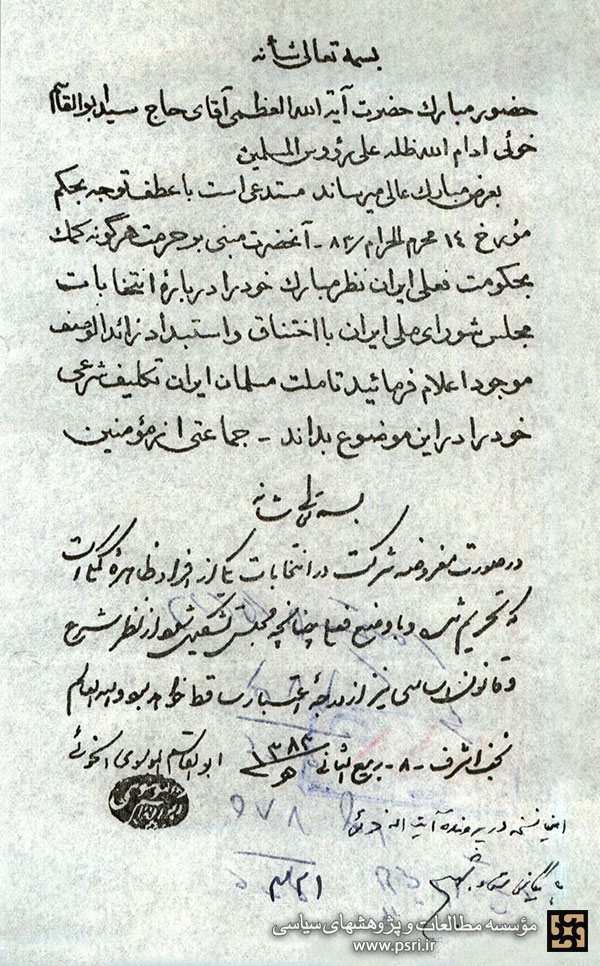 بسمه تعالی شأنه
حضور مبارک حضرت آیة الله العظمی آقای حاج سید ابوالقاسم
خوئی ادام الله ظله علی رؤوس المسلمین
بعرض مبارک عالی میرساند مستدعی است با عطف توجه بحکم
مؤرخ ۱۴ محرم الحرام /۸۳ - آنحضرت مبنی بر حرمت هرگونه کمک
بحکومت فعلی ایران نظر مبارک خود را دربارهٔ انتخابات
مجلس شورای ملی ایران با اختناق و استبداد زائد الوصف
موجود اعلام فرمائید تا ملت مسلمان ایران تکلیف شرعی
خود را در این موضوع بداند - جماعتی از مؤمنین
بسمه تعالی شانه
در صورت مفروضه شرکت در انتخابات یکی از افراد ظاهره کمک است
که تحریم شده و با وضع فعلی چنانچه مجلس تشکیل شود از نظر شرع
و قانون اساسی نیز از درجهٔ اعتبار ساقط خواهد بود والله العالم
نجف اشرف - ۸ - ربیع الثانی ۱۳۸۳ هـ ابوالقاسم الموسوی الخوئی
این نسخه در پرونده آیت اله خوئی
بایگانی شود
مؤسسه مطالعات و پژوهشهای سیاسی
www.psri.ir